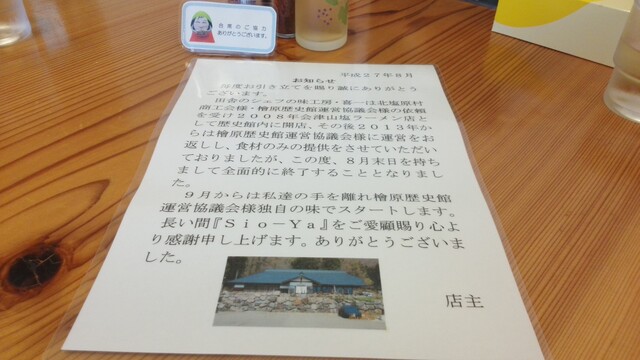 自席のご協力
ありがとうございます。
平成27年8月
お知らせ
毎度お引き立てを賜り誠にありがとう
ございます。
田舎のシェフの味工房・喜一は北塩原村
商工会様・檜原歴史館運営協議会様の依頼
を受け2008年会津山塩ラーメン店と
して歴史館内に開店、その後2013年か
らは檜原歴史館運営協議会様に運営をお
返しし、食材のみの提供をさせていただい
ておりましたが、この度、8月末日を持ち
まして全面的に終了することとなりまし
た。
9月からは私達の手を離れ檜原歴史館
運営協議会様独自の味でスタートします。
長い間『Sio－Ya』をご愛顧賜り心よ
り感謝申し上げます。ありがとうございま
した。
店主